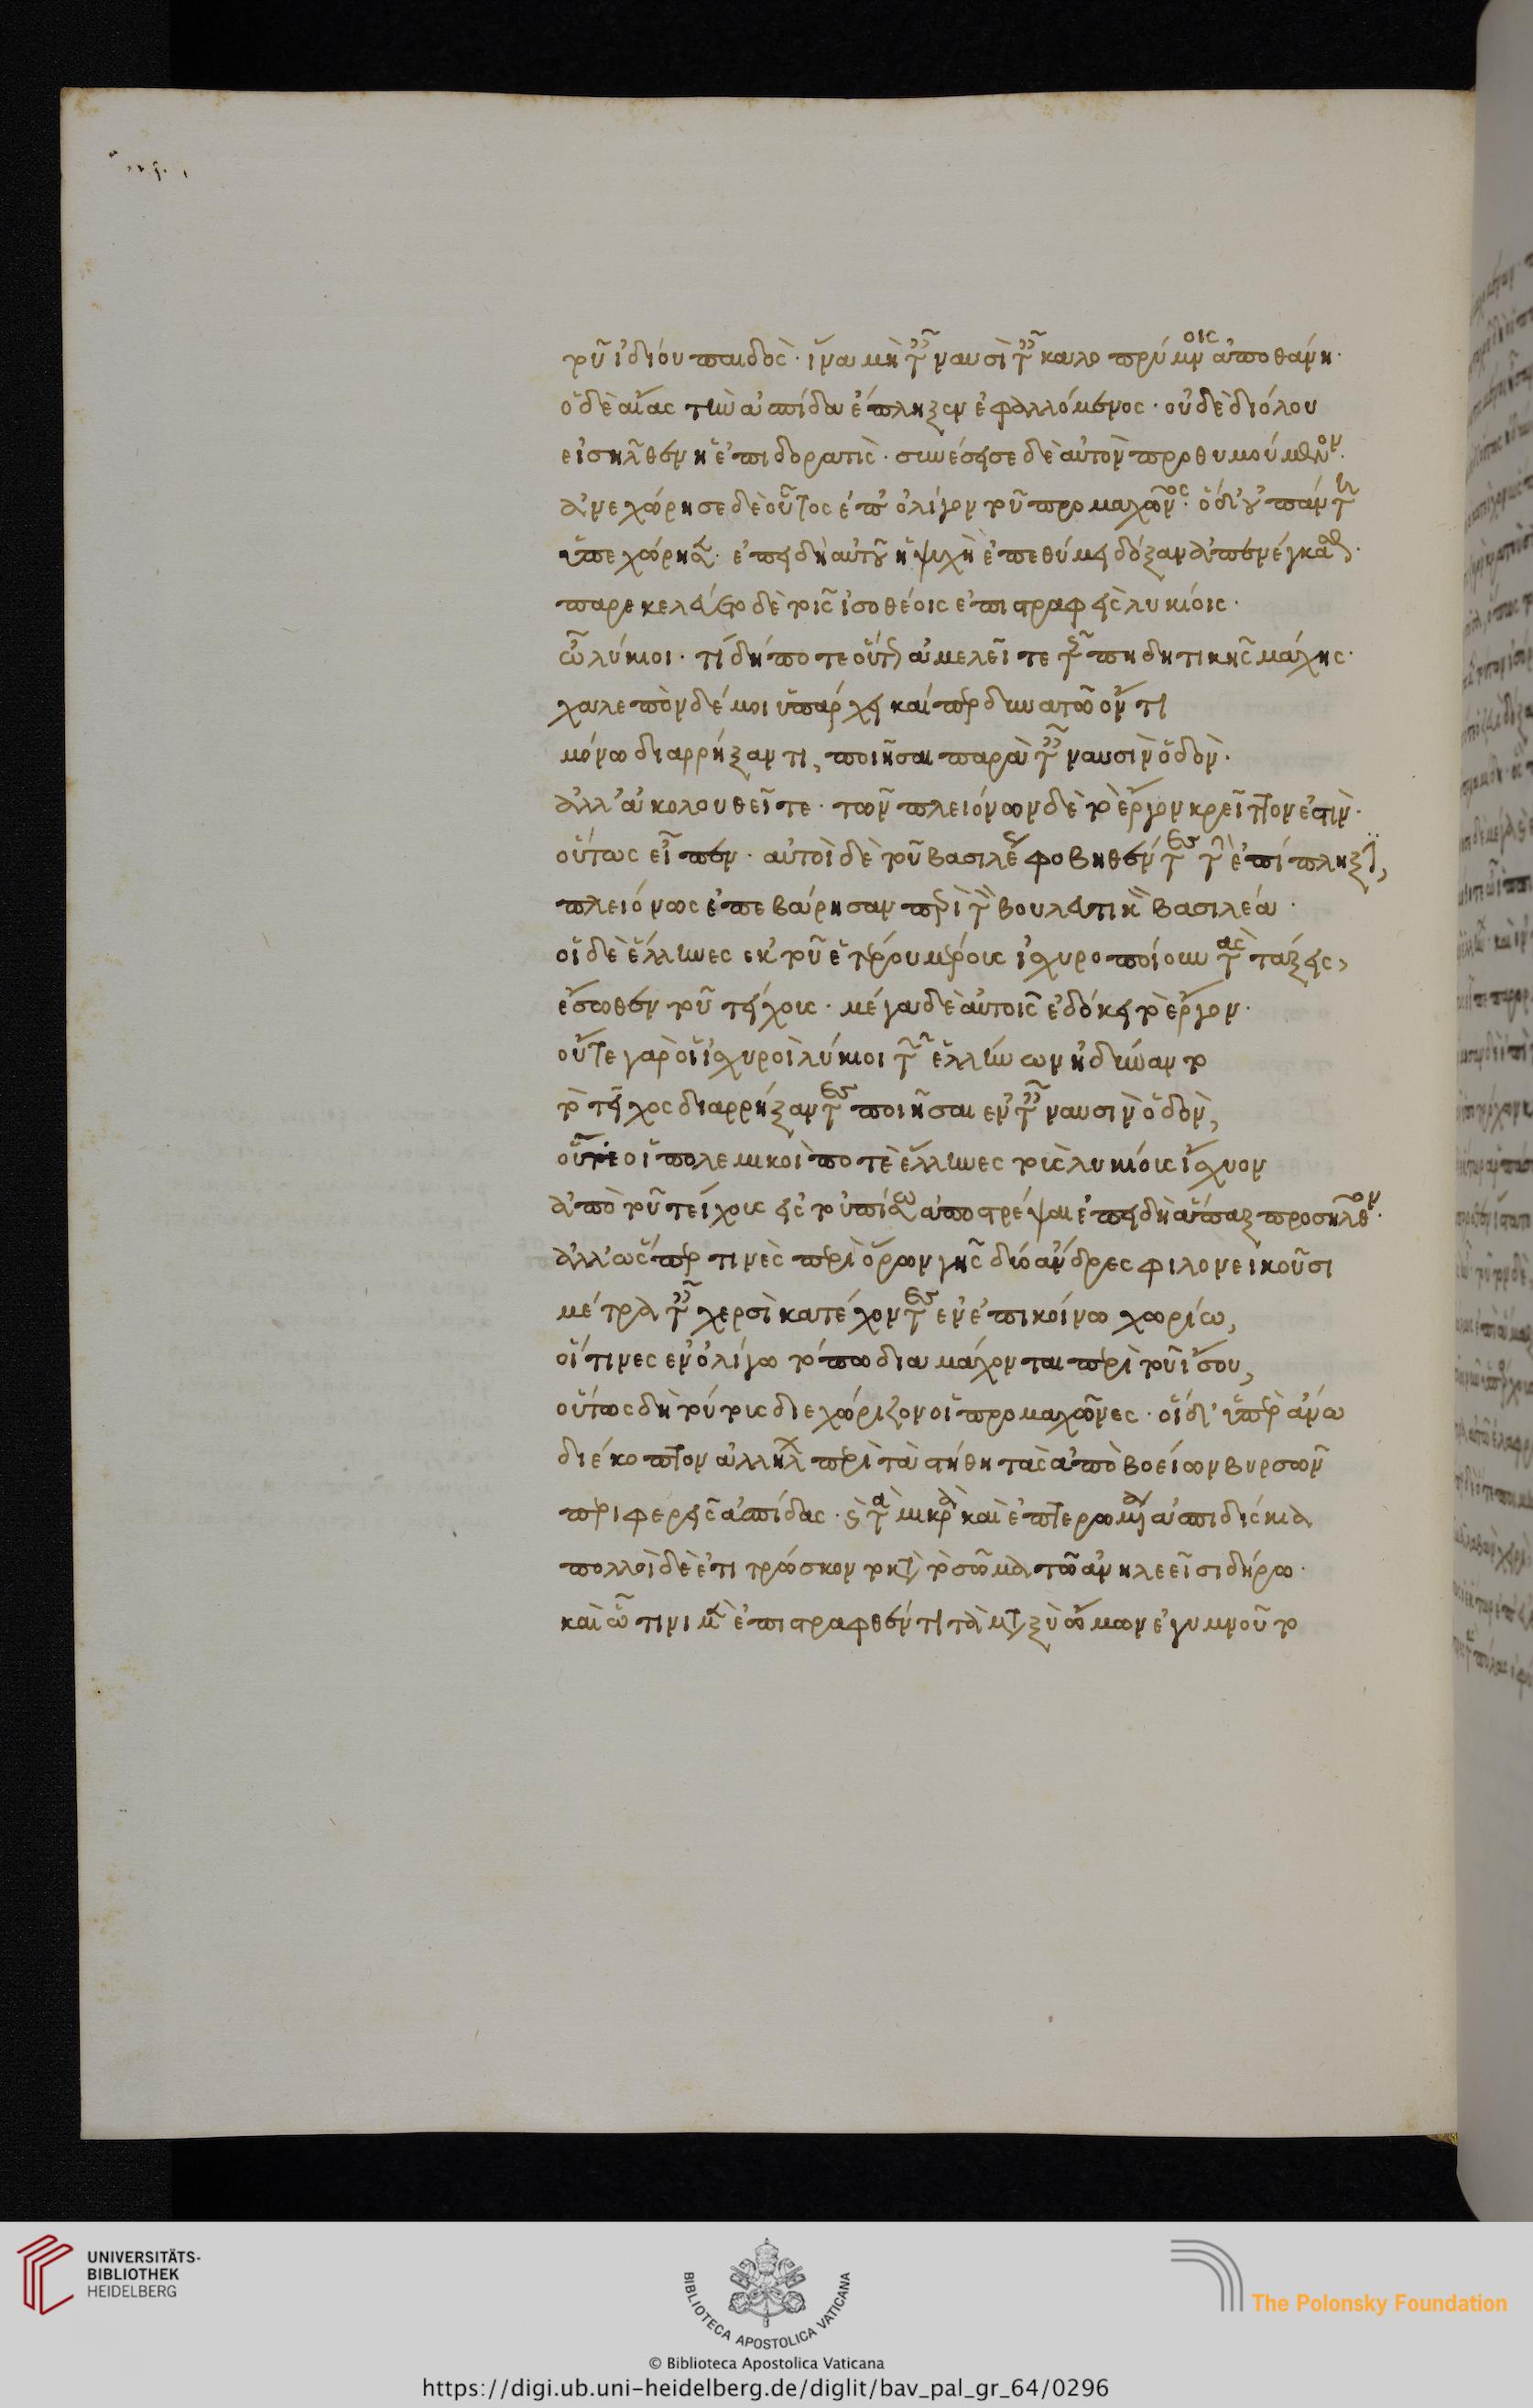 τοῦ ἰδίου παιδὸς· ἵνα μὴ ταῖς ναυσὶ ταῖς καλο πρύμνοις ἀποθάνη·
ὁ δὲ αἴας τὴν ἀσπίδα ἔπληξεν ἐφαλλόμενος· οὐδὲ διόλου
εἰσῆλθεν ἡ ἐπιδορατὶς· συνέσεισε δὲ αὐτὸν προθυμούμενον·
ἀνεχώρησε δὲ οὗτος ἐπ' ὀλίγον τοῦ προμαχῶνος· ὁ δ' οὐ παντελῶς
ὑπεχώρησεν· ἐπειδὴ αὐτοῦ ἡ ψυχὴ ἐπεθύμει δόξαν ἀπενέγκασθαι·
παρεκελεύετο δὲ τοῖς ἰσοθέοις ἐπιστραφεὶς λυκίοις·
ὦ λύκιοι· τί δήποτε οὕτως ἀμελεῖτε τῆς πηδητικῆς μάχης·
χαλεπὸν δέ μοι ὑπάρχει καίπερ δυνατῶ ὄντι
μόνω διαρρήξαντι, ποιῆσαι παρὰ ταῖς ναυσὶν ὁδὸν·
ἀλλ' ἀκολουθεῖτε· τῶν πλειόνων δὲ τὸ ἔργον κρεῖττον ἐστὶν·
οὕτως εἶπεν· αὐτοὶ δὲ τοῦ βασιλέως φοβηθέντες τὴν ἐπίπληξιν,
πλειόνως ἐπεβάρησαν περὶ τὸν βουλευτικὸν βασιλέα·
οἱ δὲ ἕλληνες ἐκ τοῦ ἑτέρου μέρους ἰσχυροποίουν τὰς τάξεις,
ἔσωθεν τοῦ τείχους· μέγα δὲ αὐτοῖς ἐδόκει τὸ ἔργον·
οὔτε γὰρ οἱ ἰσχυροὶ λύκιοι τῶν ἑλλήνων ἠδύναντο
τὸ τεῖχος διαρρήξαντες ποιῆσαι ἐν ταῖς ναυσὶν ὁδὸν,
οὔτε οἱ πολεμικοὶ ποτὲ ἕλληνες τοὺς λυκίους ἴσχυον
ἀπὸ τοῦ τείχους εἰς τοὐπίσω ἀποστρέψαι ἐπειδὴ ἅπαξ προσῆλθον·
ἀλλ' ὥσπερ τινὲς περὶ ὅρων γῆς δύο ἄνδρες φιλονεικοῦσι
μέτρα ταῖς χερσὶ κατέχοντες ἐν ἐπικοίνω χωρίω,
οἵτινες ἐν ὀλίγω τόπω διαμάχονται περὶ τοῦ ἴσου,
οὕτως δὴ τούτους διεχώριζον οἱ προμαχῶνες· οἱ δ' ὑπεράνω
διέκοπτον ἀλλήλων περὶ τὰ στήθη τὰς ἀπὸ βοείων βυρσῶν
περιφερεῖς ἀσπίδας· καὶ τὰ μικρὰ καὶ ἐπτερωμένα ἀσπιδίσκια
πολλοὶ δὲ ἐτιτρώσκοντο κατὰ τὸ σῶμα τῶ ἀνηλεεῖ σιδήρω·
καὶ ὧ τινι μὲν ἐπιστραφθέντι τὰ μεταξὺ ὤμων ἐγυμνοῦτο
UNIVERSITÄTS-
BIBLIOTHEK
HEIDELBERG
BIBLIOTECA APOSTOLICA VATICANA
The Polonsky Foundation
© Biblioteca Apostolica Vaticana
https://digi.ub.uni-heidelberg.de/diglit/bav_pal_gr_64/0296